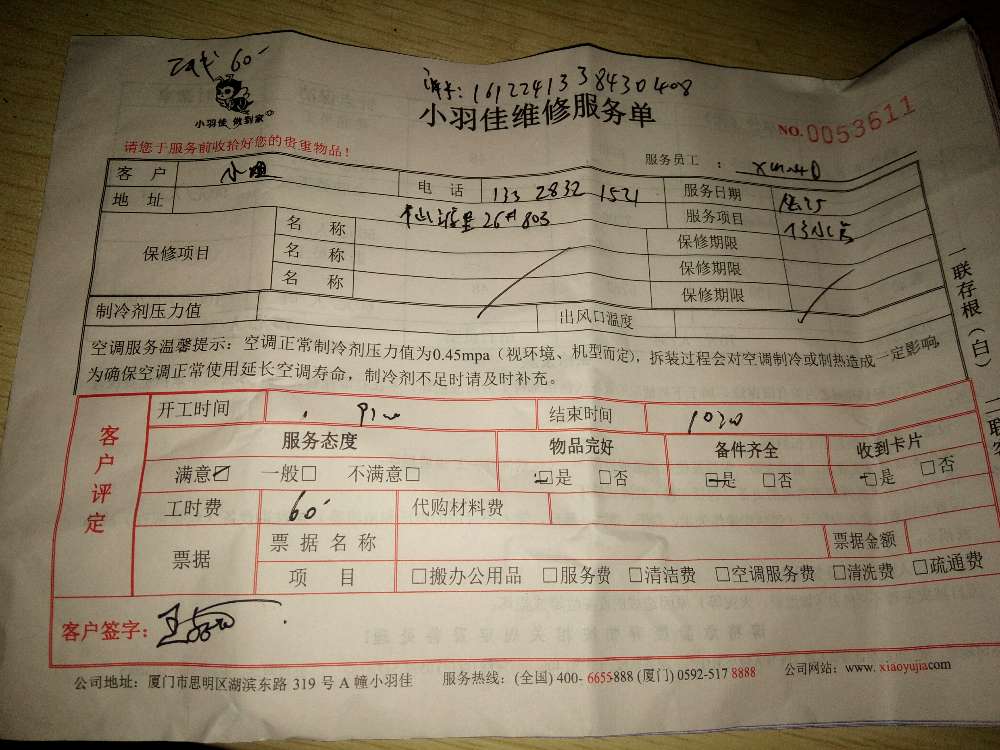 60
1612241338430408
小羽佳 做到家
小羽佳维修服务单
NO.0053611
请您于服务前收拾好您的贵重物品！
服务员工：
客 户 电 话 133 2832 1521 服务日期
地 址 26#803 服务项目
保修项目 名 称 保修期限
名 称 保修期限
名 称 保修期限
制冷剂压力值 出风口温度
空调服务温馨提示：空调正常制冷剂压力值为0.45mpa（视环境、机型而定），拆装过程会对空调制冷或制热造成一定影响，
为确保空调正常使用延长空调寿命，制冷剂不足时请及时补充。
一联存根（白）
客户评定
开工时间 结束时间
服务态度 物品完好 备件齐全 收到卡片
满意☑ 一般□ 不满意□ ☑是 □否 ☑是 □否 ☑是 □否
工时费 60 代购材料费
票据 票据名称 票据金额
项 目 □搬办公用品 □服务费 □清洁费 □空调服务费 □清洗费 □疏通费
客户签字：
公司地址：厦门市思明区湖滨东路 319 号 A 幢小羽佳 服务热线：(全国) 400- 6655-888 (厦门) 0592-517 8888 公司网站：www. xiaoyujia.com